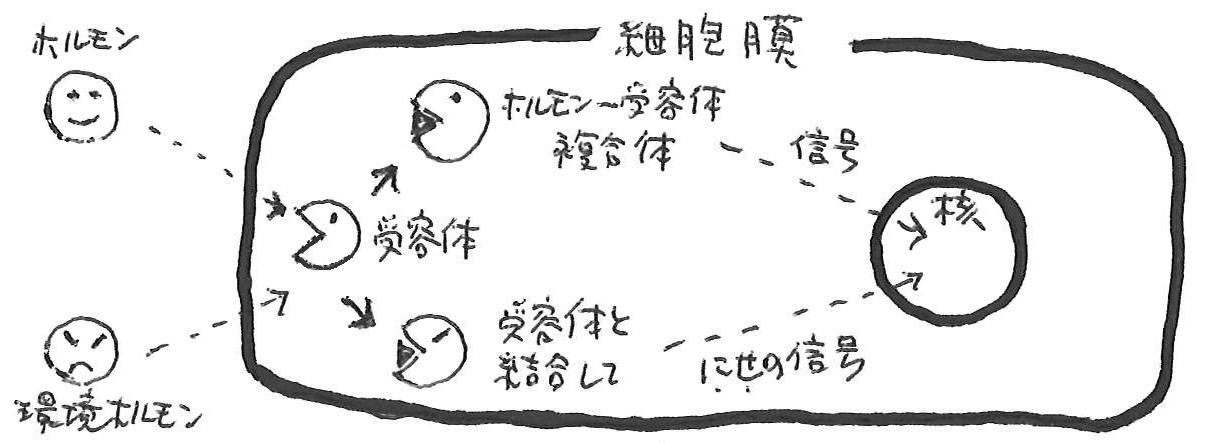 細胞膜
ホルモン
ホルモン−受容体
複合体
信号
核
受容体
受容体と
結合して
にせの信号
環境ホルモン